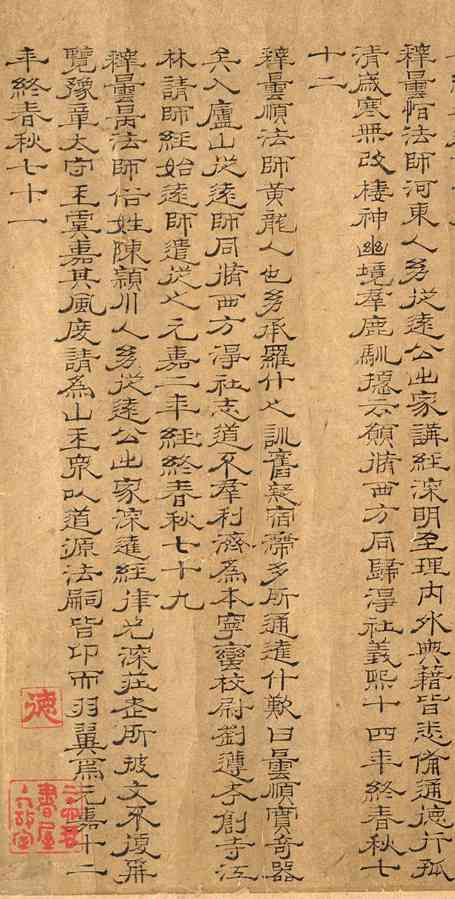 釋曇恒法師河東人幼從遠公出家講經深明至理內外典籍皆悉備通德行孤
清歲寒無改棲神幽境羣鹿馴擾云願脩西方同歸淨社義熙十四年終春秋七
十二
釋曇順法師黃龍人也幼承羅什之訓舊疑宿滯多所通達什歎曰曇順實奇器
矣入廬山從遠師同脩西方淨社志道不羣利濟為本寧蠻校尉劉遵孝創寺江
林請師經始遠師遣從之元嘉二年經終春秋七十九
釋曇昺法師俗姓陳潁川人幼從遠公出家深達經律尤深莊老所披文不復再
覽豫章太守王虔嘉其風度請為山主眾以道源法嗣皆仰而羽翼焉元嘉十二
年終春秋七十一
德